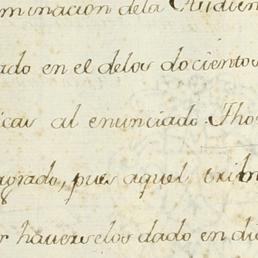 minacion dela Audien
ado en el delos docientos
icas al enunciado Tho
agrado, pues aquel trib
r haverselos dado en di